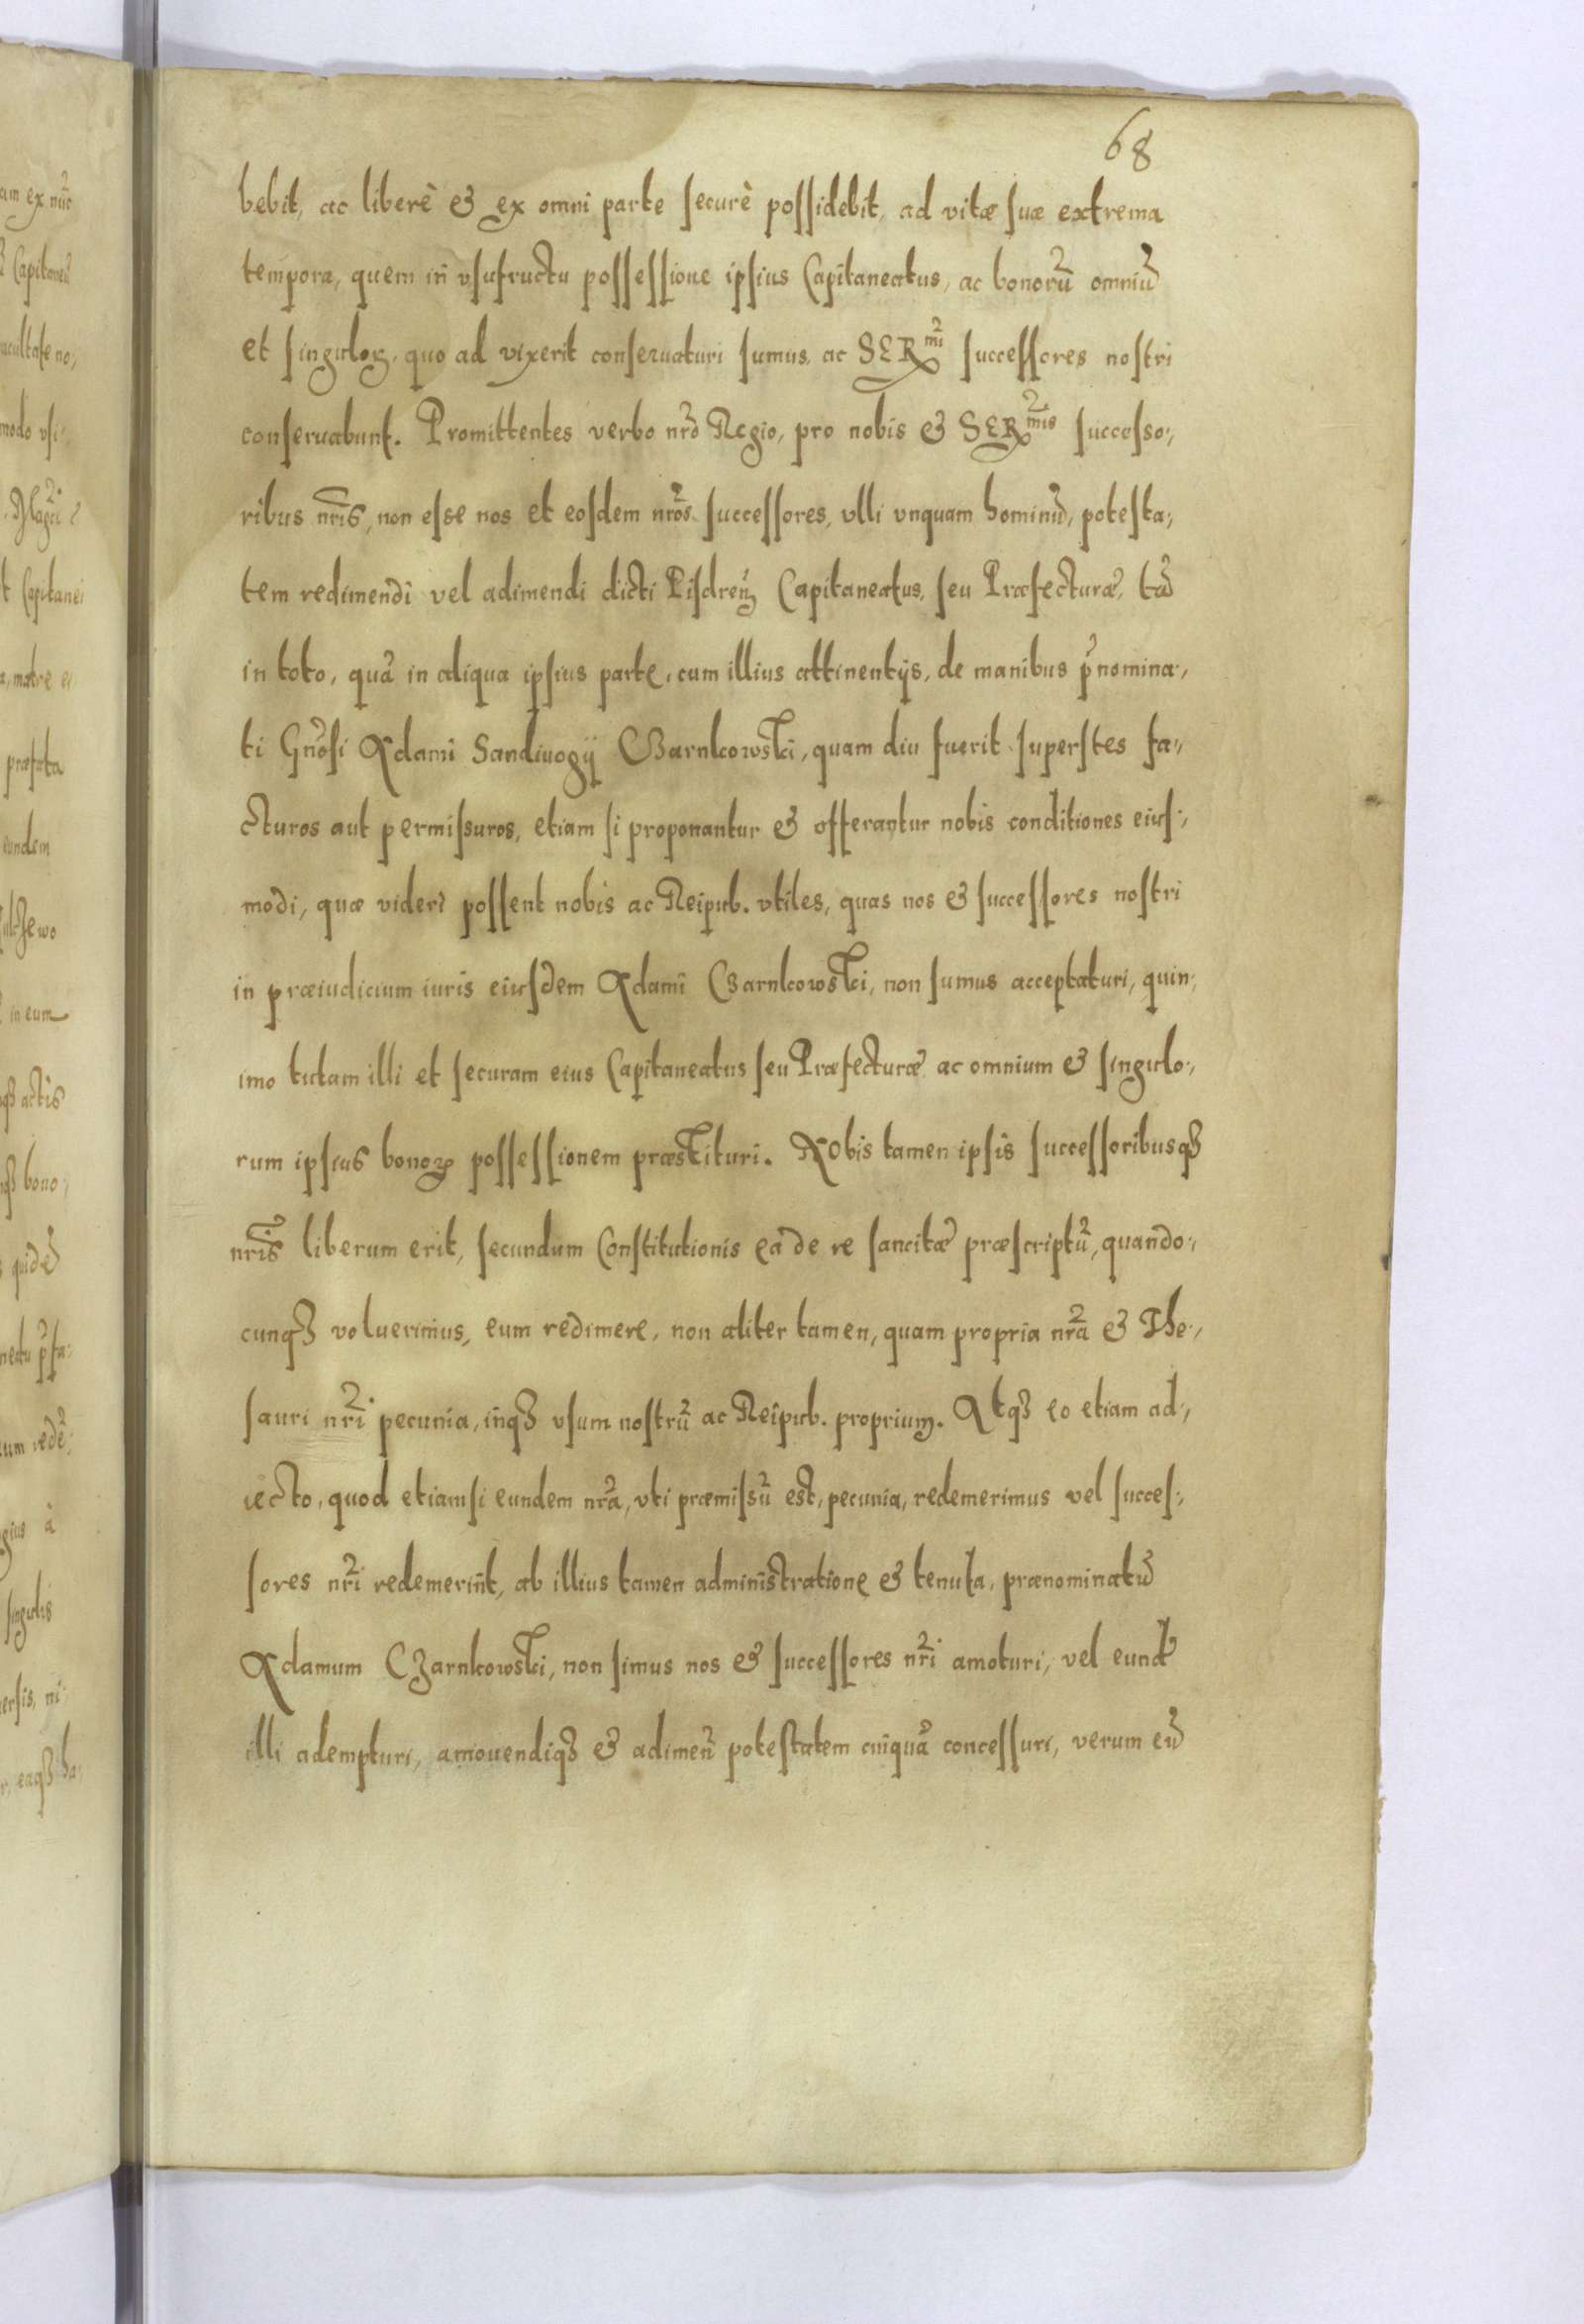 68
bebit, ac liberè & ex omni parte securè possidebit, ad vitæ suæ extrema
tempora, quem in vsufructu possessione ipsius Capitaneatus, ac bonorū omniū
et singuloꝝ, quo ad vixerit conseruaturi sumus, ac SERmi successores nostri
conseruabunt. Promittentes verbo nr̃o Regio, pro nobis & SERmis successo-,
ribus nr̃is, non esse nos et eosdem nr̃os successores, vlli vnquam hominū, potesta-,
tem redimendi vel adimendi dicti Pisdreñ Capitaneatus, seu Præfecturæ, tā
in toto, quā in aliqua ipsius parte, cum illius attinentijs, de manibus p̃nomina-,
ti Gnõsi Adami Sandiuogij Czarnkowski, quam diu fuerit superstes fa-,
cturos aut permissuros, etiam si proponantur & offerantur nobis conditiones eius-,
modi, quæ videri possent nobis ac Reipub. vtiles, quas nos & successores nostri
in præiudicium iuris eiusdem Adami Czarnkowski, non sumus acceptaturi, quin,
imo tutam illi et securam eius Capitaneatus seu Præfecturæ ac omnium & singulo-,
rum ipsius bonoꝝ possessionem præstituri. Nobis tamen ipsis successoribusqꝫ
nr̃is liberum erit, secundum Constitutionis eā de re sancitæ præscriptū, quando-,
cunqꝫ voluerimus, eum redimere, non aliter tamen, quam propria nr̃a & The-,
sauri nr̃i pecunia, inqꝫ vsum nostrū ac Reipub. proprium. Atqꝫ eo etiam ad-,
iecto, quod etiamsi eundem nr̃a, vti præmissū est, pecunia, redemerimus vel succes-,
sores nr̃i redemerint, ab illius tamen administratione & tenuta, prænominatū
Adamum Czarnkowski, non simus nos & successores nr̃i amoturi, vel eundē
illi adempturi, amouendiqꝫ & adimeñ potestatem cuiquā concessuri, verum eū